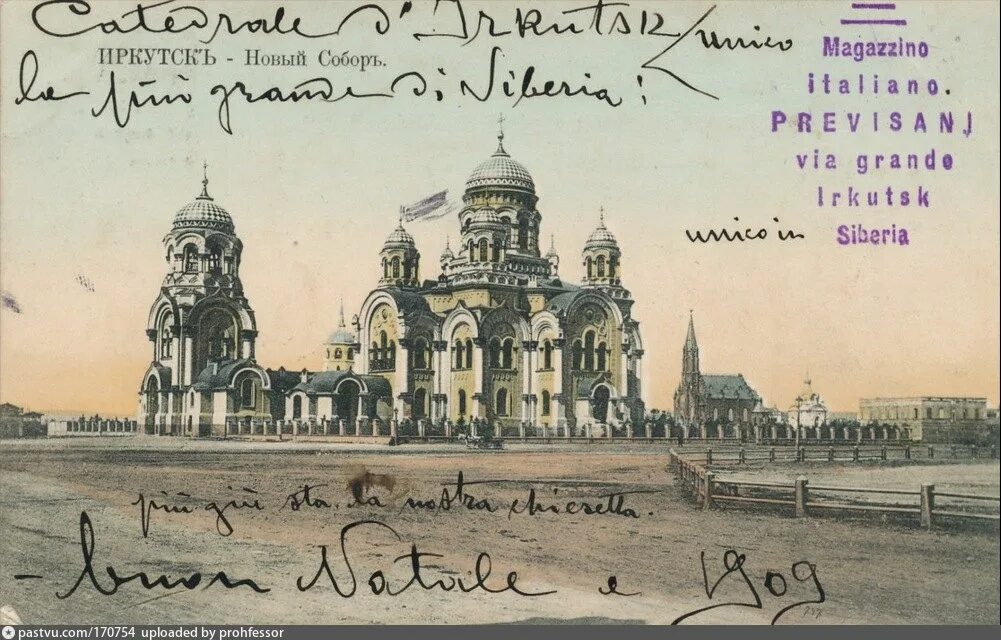 Catedrale d'Irkutsk
ИРКУТСКЪ - Новый Соборъ.
la più grande di Siberia!
unico
Magazzino
italiano.
PREVISANI
via grande
Irkutsk
Siberia
unico in
più giù sta la nostra chiesetta.
- buon Natale e 1909
pastvu.com/170754 uploaded by prohfessor